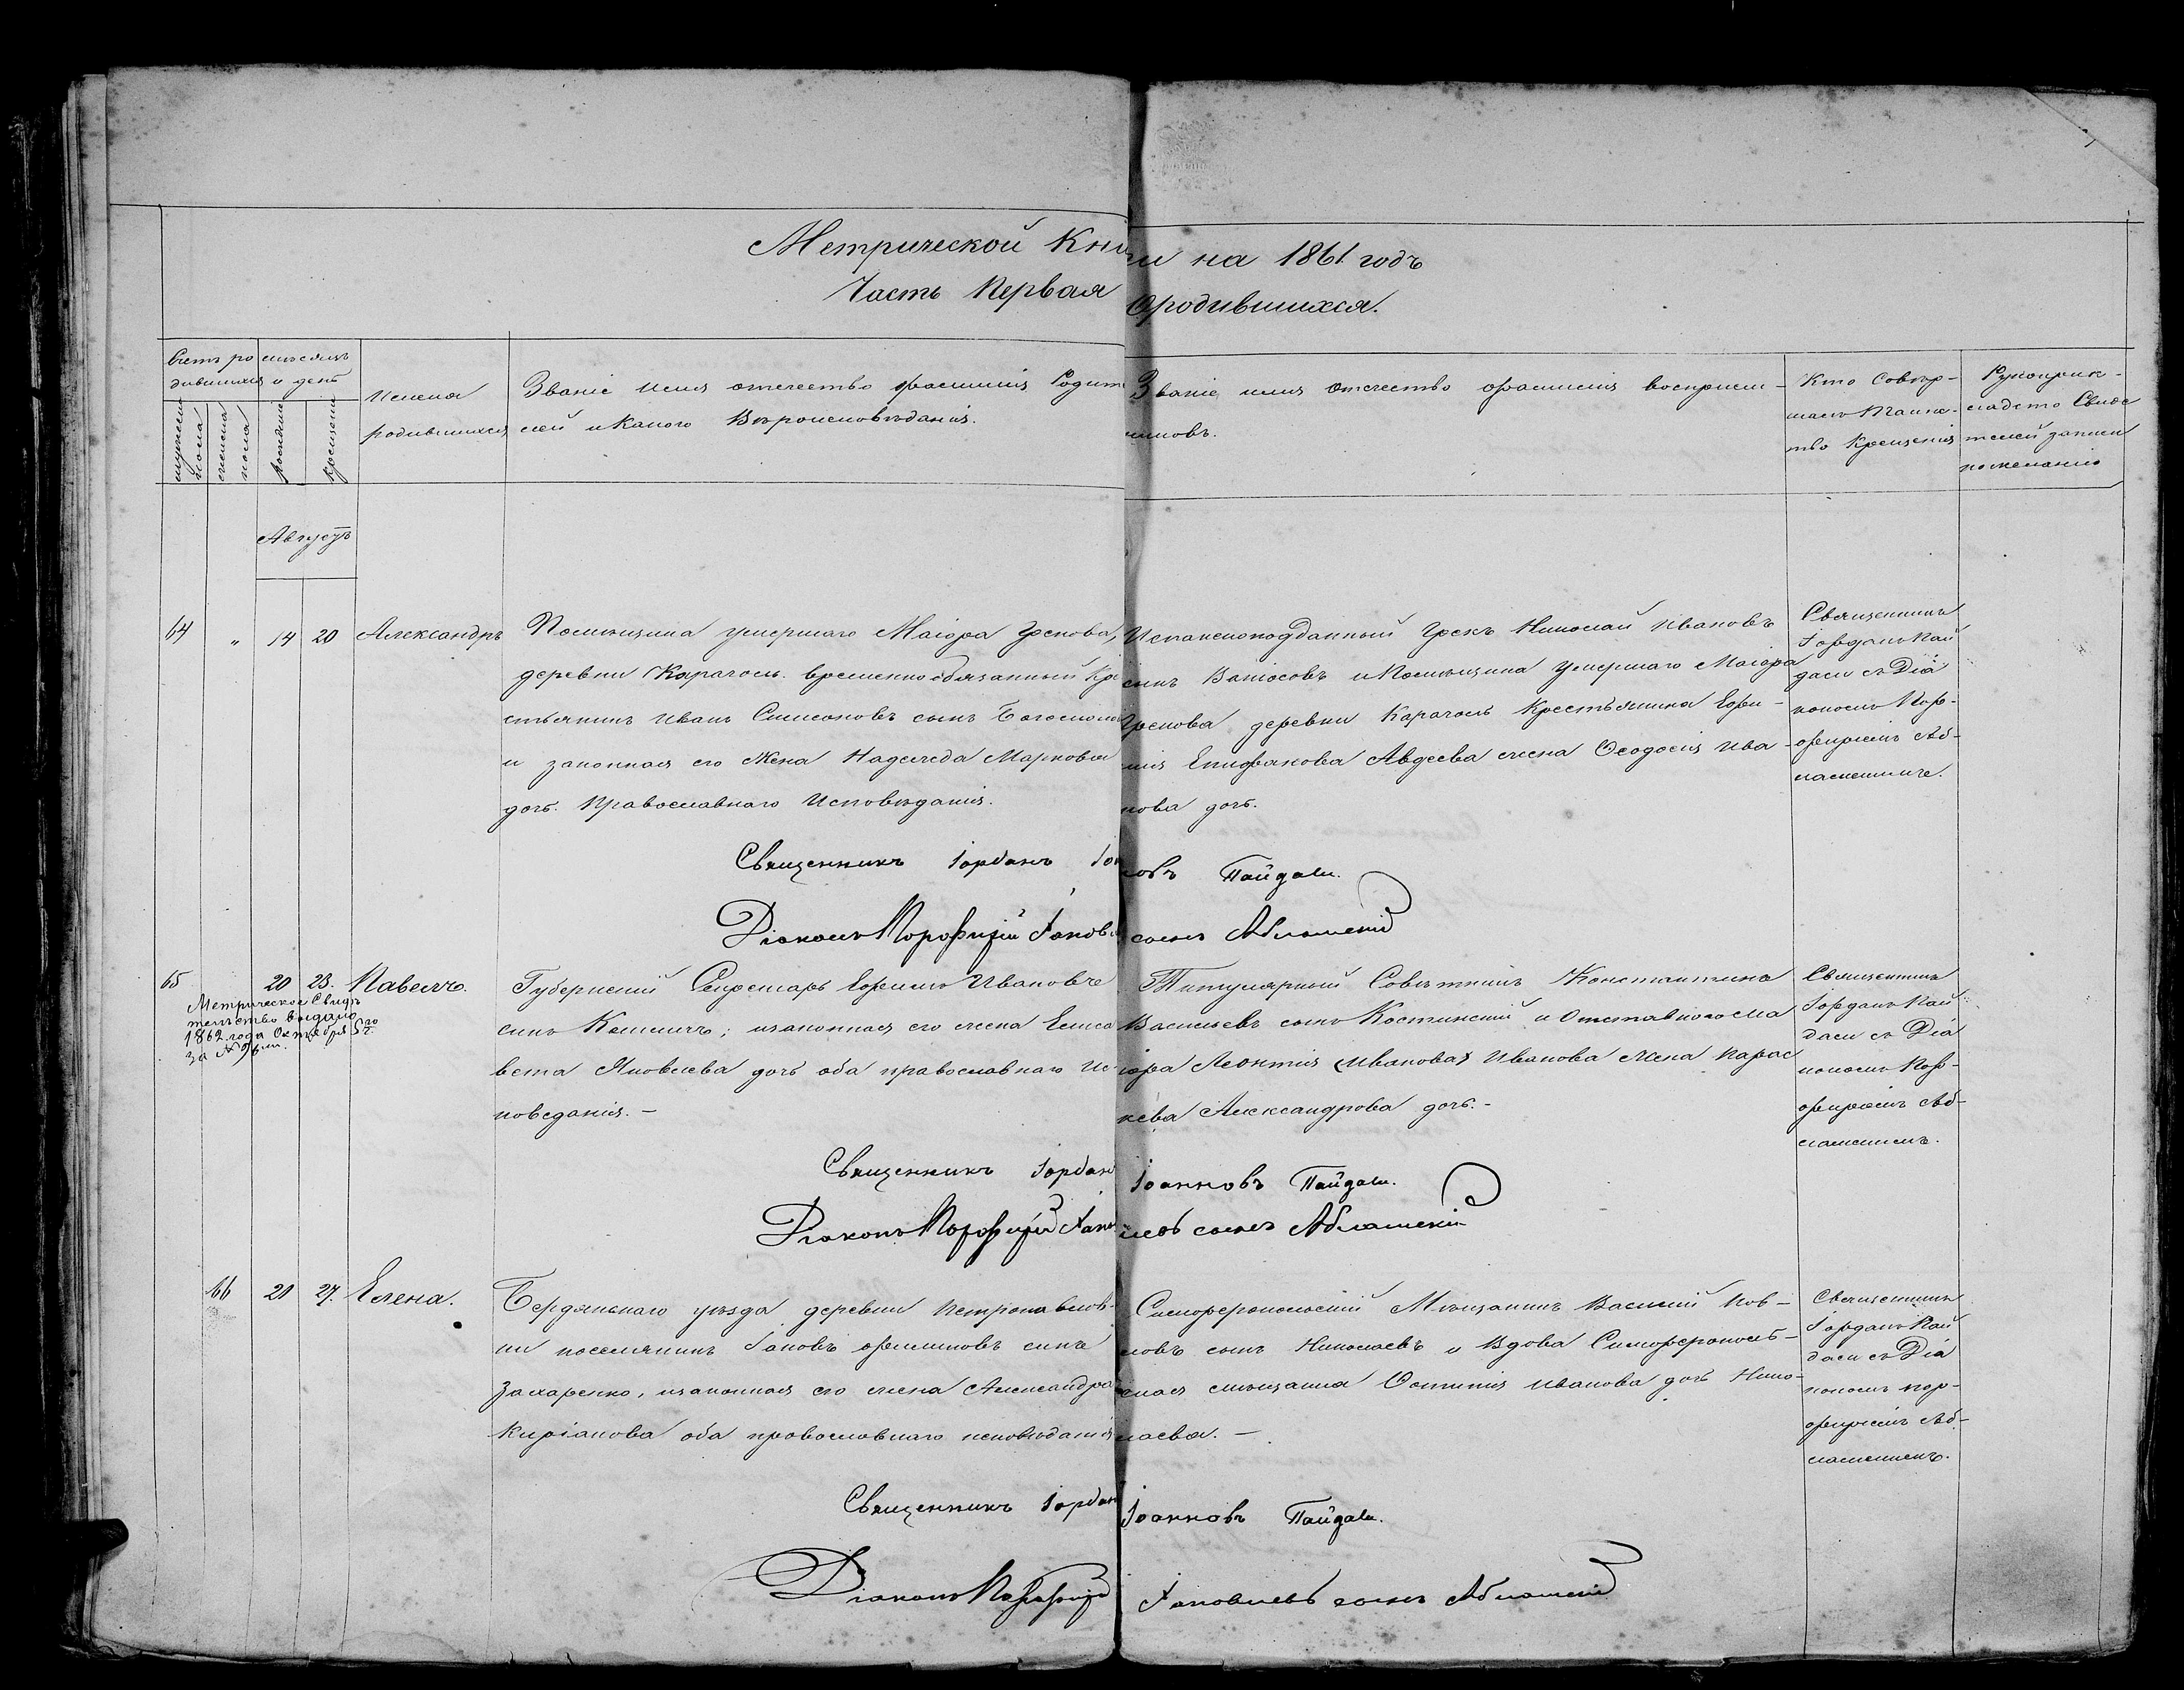 Метрической Книги на 1861 годъ
Часть Первая О родившихся.
Счетъ ро
дившихся
мужеска
пола
женска
пола
месяцъ
и день
рожденія
крещенія
Имена
родившихся
Званіе имя отечество фамилія Родите
лей и какого Вѣроисповѣданія.
Званіе, имя отечество фамилія восприем-
никовъ.
Кто Совер-
шалъ Таинс-
тво Крещенія
Рукоприк-
ладство Свиде
телей записи
по желанію
Августъ
64 " 14 20 Александръ
Помѣщика умершаго Маіора Грекова,
деревни Карагозъ временно обязанный Кре
стьянинъ Иванъ Симоновъ сынъ
и законная его Жена Надежда Маркова
дочь. Православнаго Исповѣданія.
подданный Грекъ Николай Ивановъ
сынъ и Помѣщика Умершаго Маіора
Грекова деревни Карагозъ Крестьянина
Епифанова Авдеева жена Ѳеодосія Ива-
нова дочь.
Священникъ
Іорданъ Пай
даси съ Діа
кономъ Пор-
фиріемъ Аб-
Священникъ Іорданъ Іоанновъ Пайдаси.
Діаконъ Порфирій Іаковлевъ сынъ
65 20 23. Павелъ.
Метрическое Свидѣ
тельство выдано
1862 года Октября 5го
за №
Губернскій Секретарь Ефимъ Ивановъ
сынъ и законная его жена Елиса
вета Яковлева дочь оба православнаго Ис-
поведанія. –
Титулярный Совѣтникъ Константинъ
Васильевъ сынъ и Отставного Ма
іора Леонтія (Иванова) Иванова жена Парас
кева Александрова дочь. –
Священникъ
Іорданъ Пай
даси съ Діа
кономъ Пор-
фиріемъ Аб-
Священникъ Іорданъ Іоанновъ Пайдаси.
Діаконъ Порфирій Іаковлевъ сынъ
66 21 27. Елена.
Бердянскаго уѣзда деревни Петропавлов-
ки поселянинъ Іаковъ сынъ
Захаренко, и законная его жена Александра
Киріанова оба православнаго исповѣданія
Симферопольскій Мѣщанинъ Василій
сынъ Николаевъ и Вдова Симферополь-
ская мѣщанка Иванова дочь Нико-
лаева. –
Священникъ
Іорданъ Пай
даси съ Діа
кономъ Пор-
фиріемъ Аб-
Священникъ Іорданъ Іоанновъ Пайдаси.
Діаконъ Порфирій Іаковлевъ сынъ